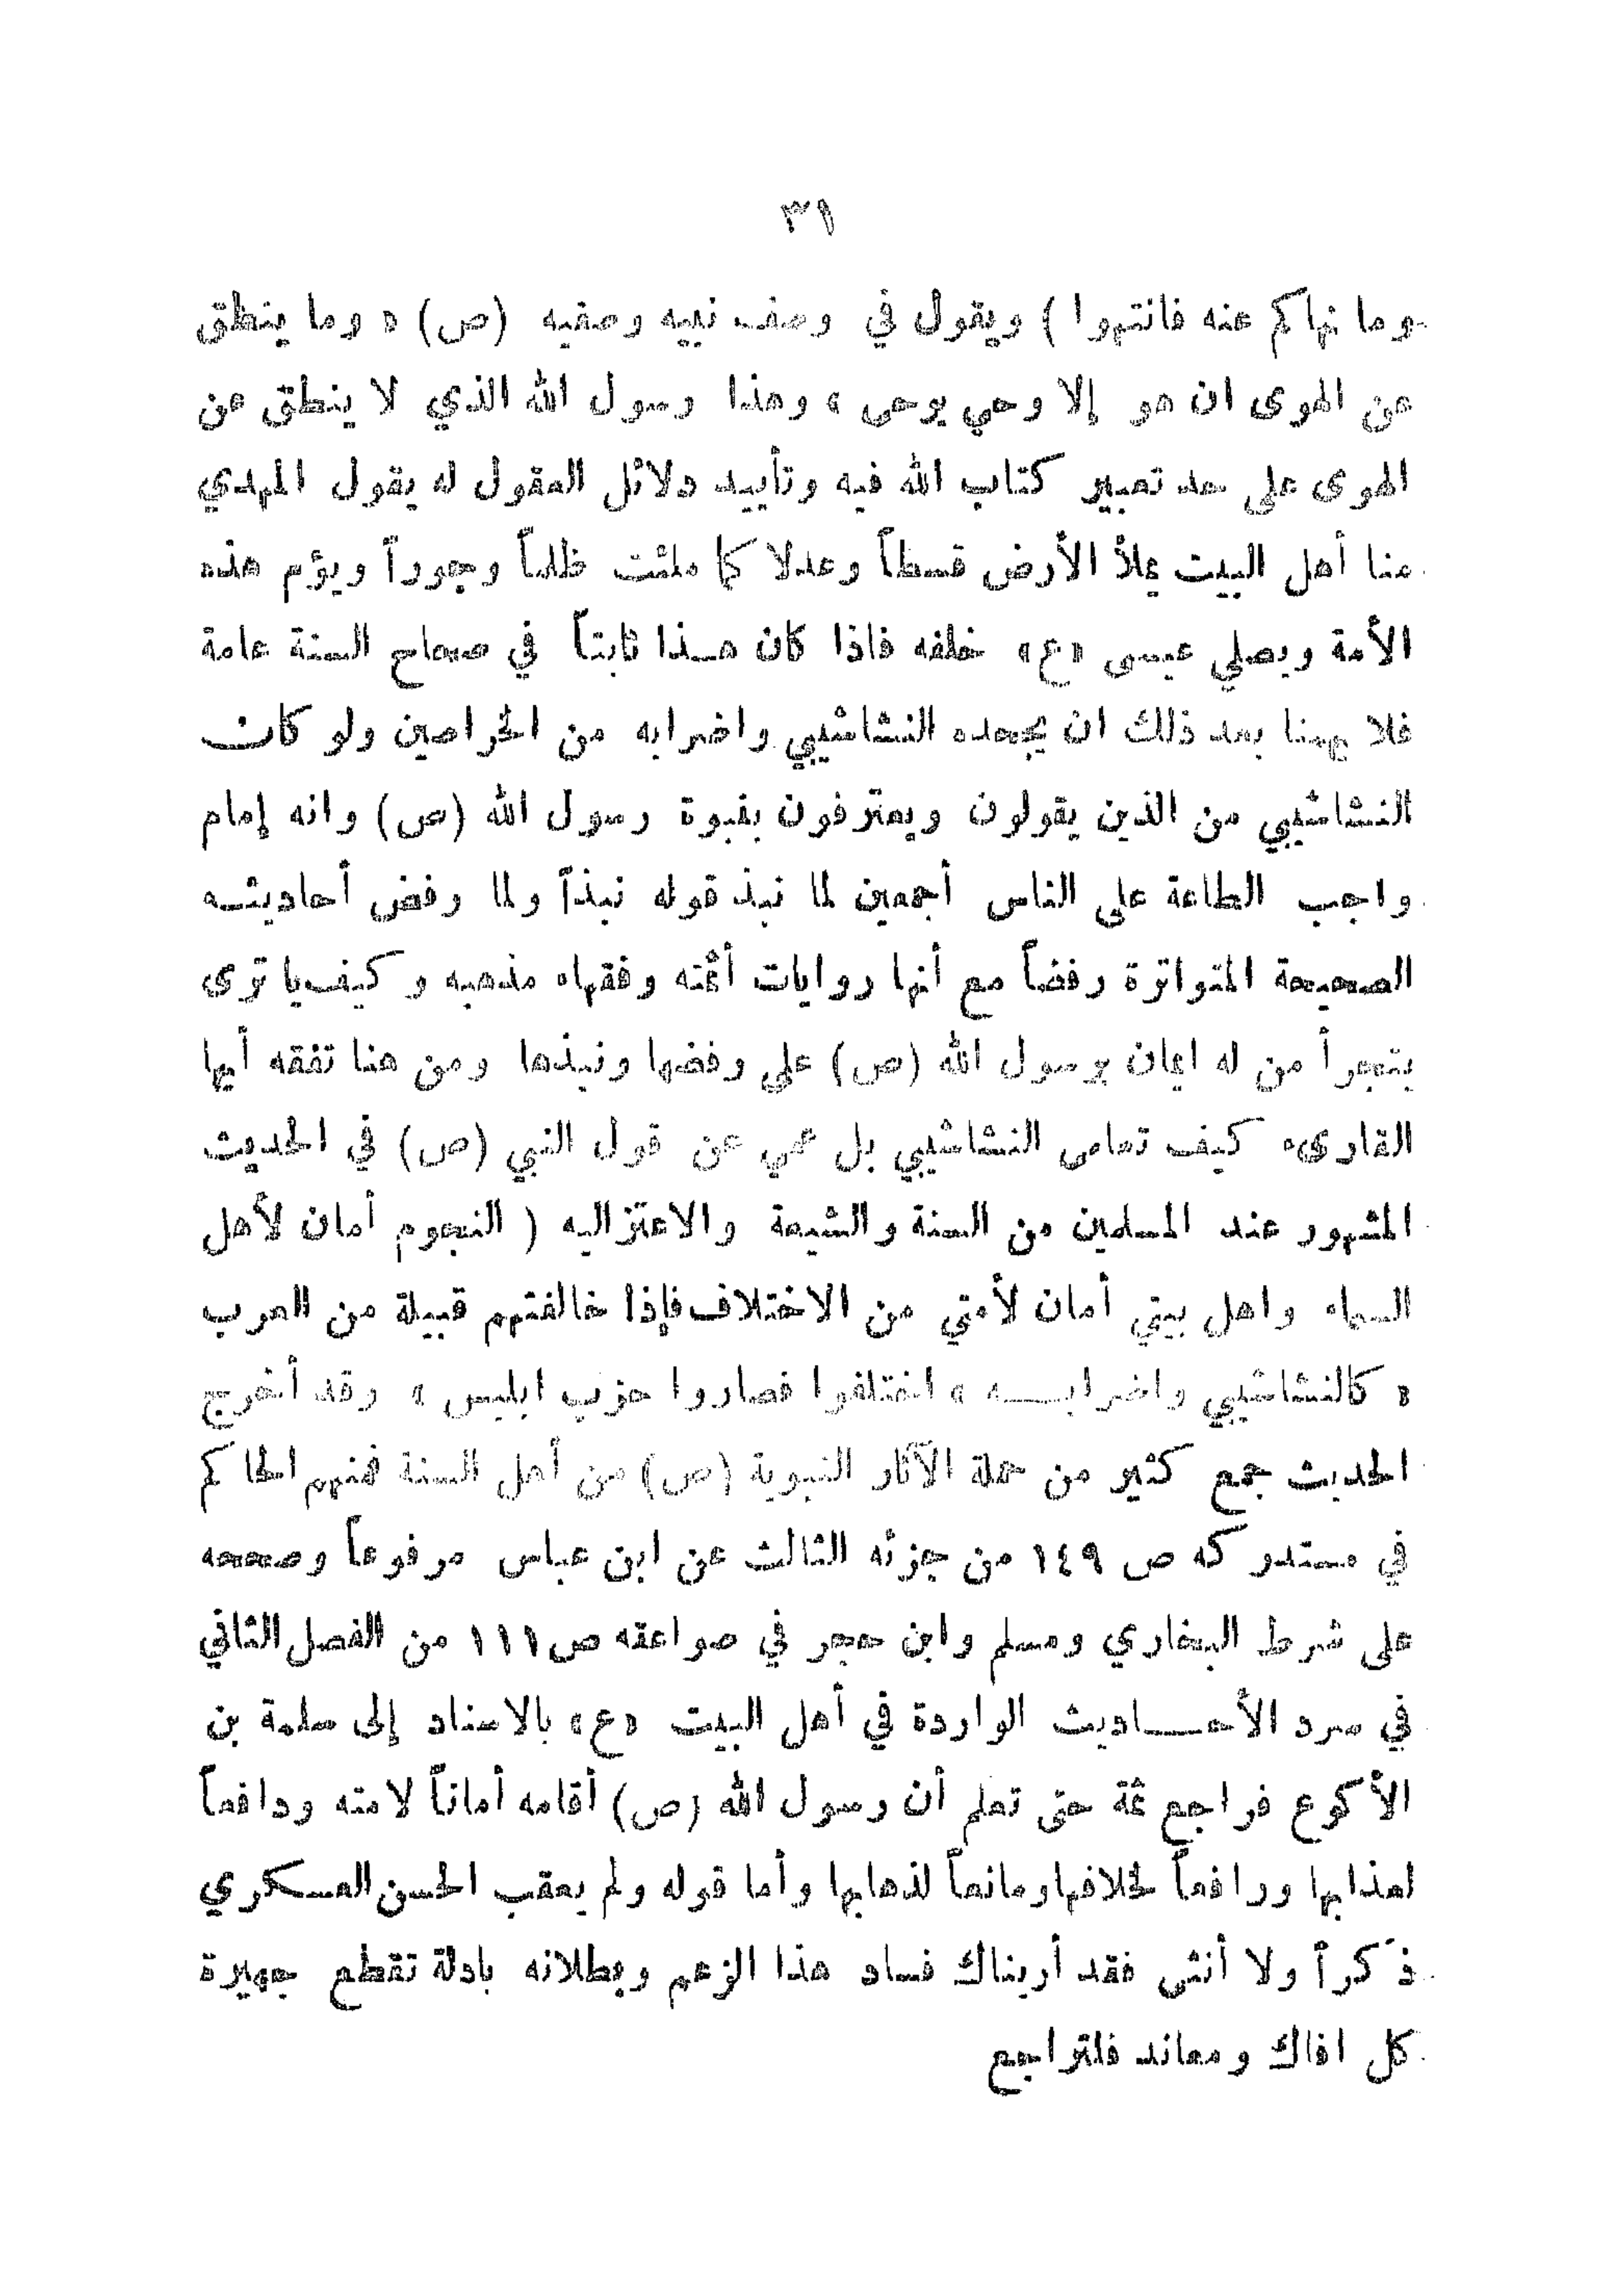 ٣١
وما نهاكم عنه فانتهوا ) ويقول في وصف نبيه وصفيه (ص) « وما ينطق
عن الهوى ان هو إلا وحي يوحى » وهذا رسول الله الذي لا ينطق عن
الهوى على حد تعبير كتاب الله فيه وتأييد دلائل العقول له يقول المهدي
منا أهل البيت يملأ الأرض قسطاً وعدلا كما ملئت ظلماً وجوراً ويؤم هذه
الأمة ويصلي عيسى «ع» خلفه فاذا كان هـذا ثابتاً في صحاح السنة عامة
فلا يهمنا بعد ذلك ان يجحده النشاشيبي واضرابه من الخراصين ولو كان
النشاشيبي من الذين يقولون ويعترفون بنبوة رسول الله (ص) وانه إمام
واجب الطاعة على الناس أجمعين لما نبذ قوله نبذاً ولما رفض أحاديثـه
الصحيحة المتواترة رفضاً مع أنها روايات أئمته وفقهاء مذهبه وكيف يا ترى
يتجرأ من له ايمان برسول الله (ص) على رفضها ونبذها ومن هنا تفقه أيها
القارىء كيف تعامى النشاشيبي بل عمي عن قول النبي (ص) في الحديث
المشهور عند المسلمين من السنة والشيعة والاعتزاليه ( النجوم أمان لأهل
السماء واهل بيتي أمان لأمتي من الاختلاف فإذا خالفتهم قبيلة من العرب
« كالنشاشيبي واضرابـــه » اختلفوا فصاروا حزب ابليس » وقد أخرج
الحديث جمع كثير من حملة الآثار النبوية (ص) من أهل السنة فمنهم الحاكم
في مستدركه ص ١٤٩ من جزئه الثالث عن ابن عباس مرفوعاً وصححه
على شرط البخاري ومسلم وابن حجر في صواعقه ص ١١١ من الفصل الثاني
في سرد الأحـــاديث الواردة في أهل البيت «ع» بالاسناد إلى سلمة بن
الأكوع فراجع ثمة حتى تعلم أن رسول الله (ص) أقامه أماناً لامته ودافعاً
لعذابها ورافعاً لخلافها ومانعاً لذهابها وأما قوله ولم يعقب الحسن العسكري
ذكراً ولا أنثى فقد أريناك فساد هذا الزعم وبطلانه بادلة تقطع جهيزة
كل افاك ومعاند فلتراجع